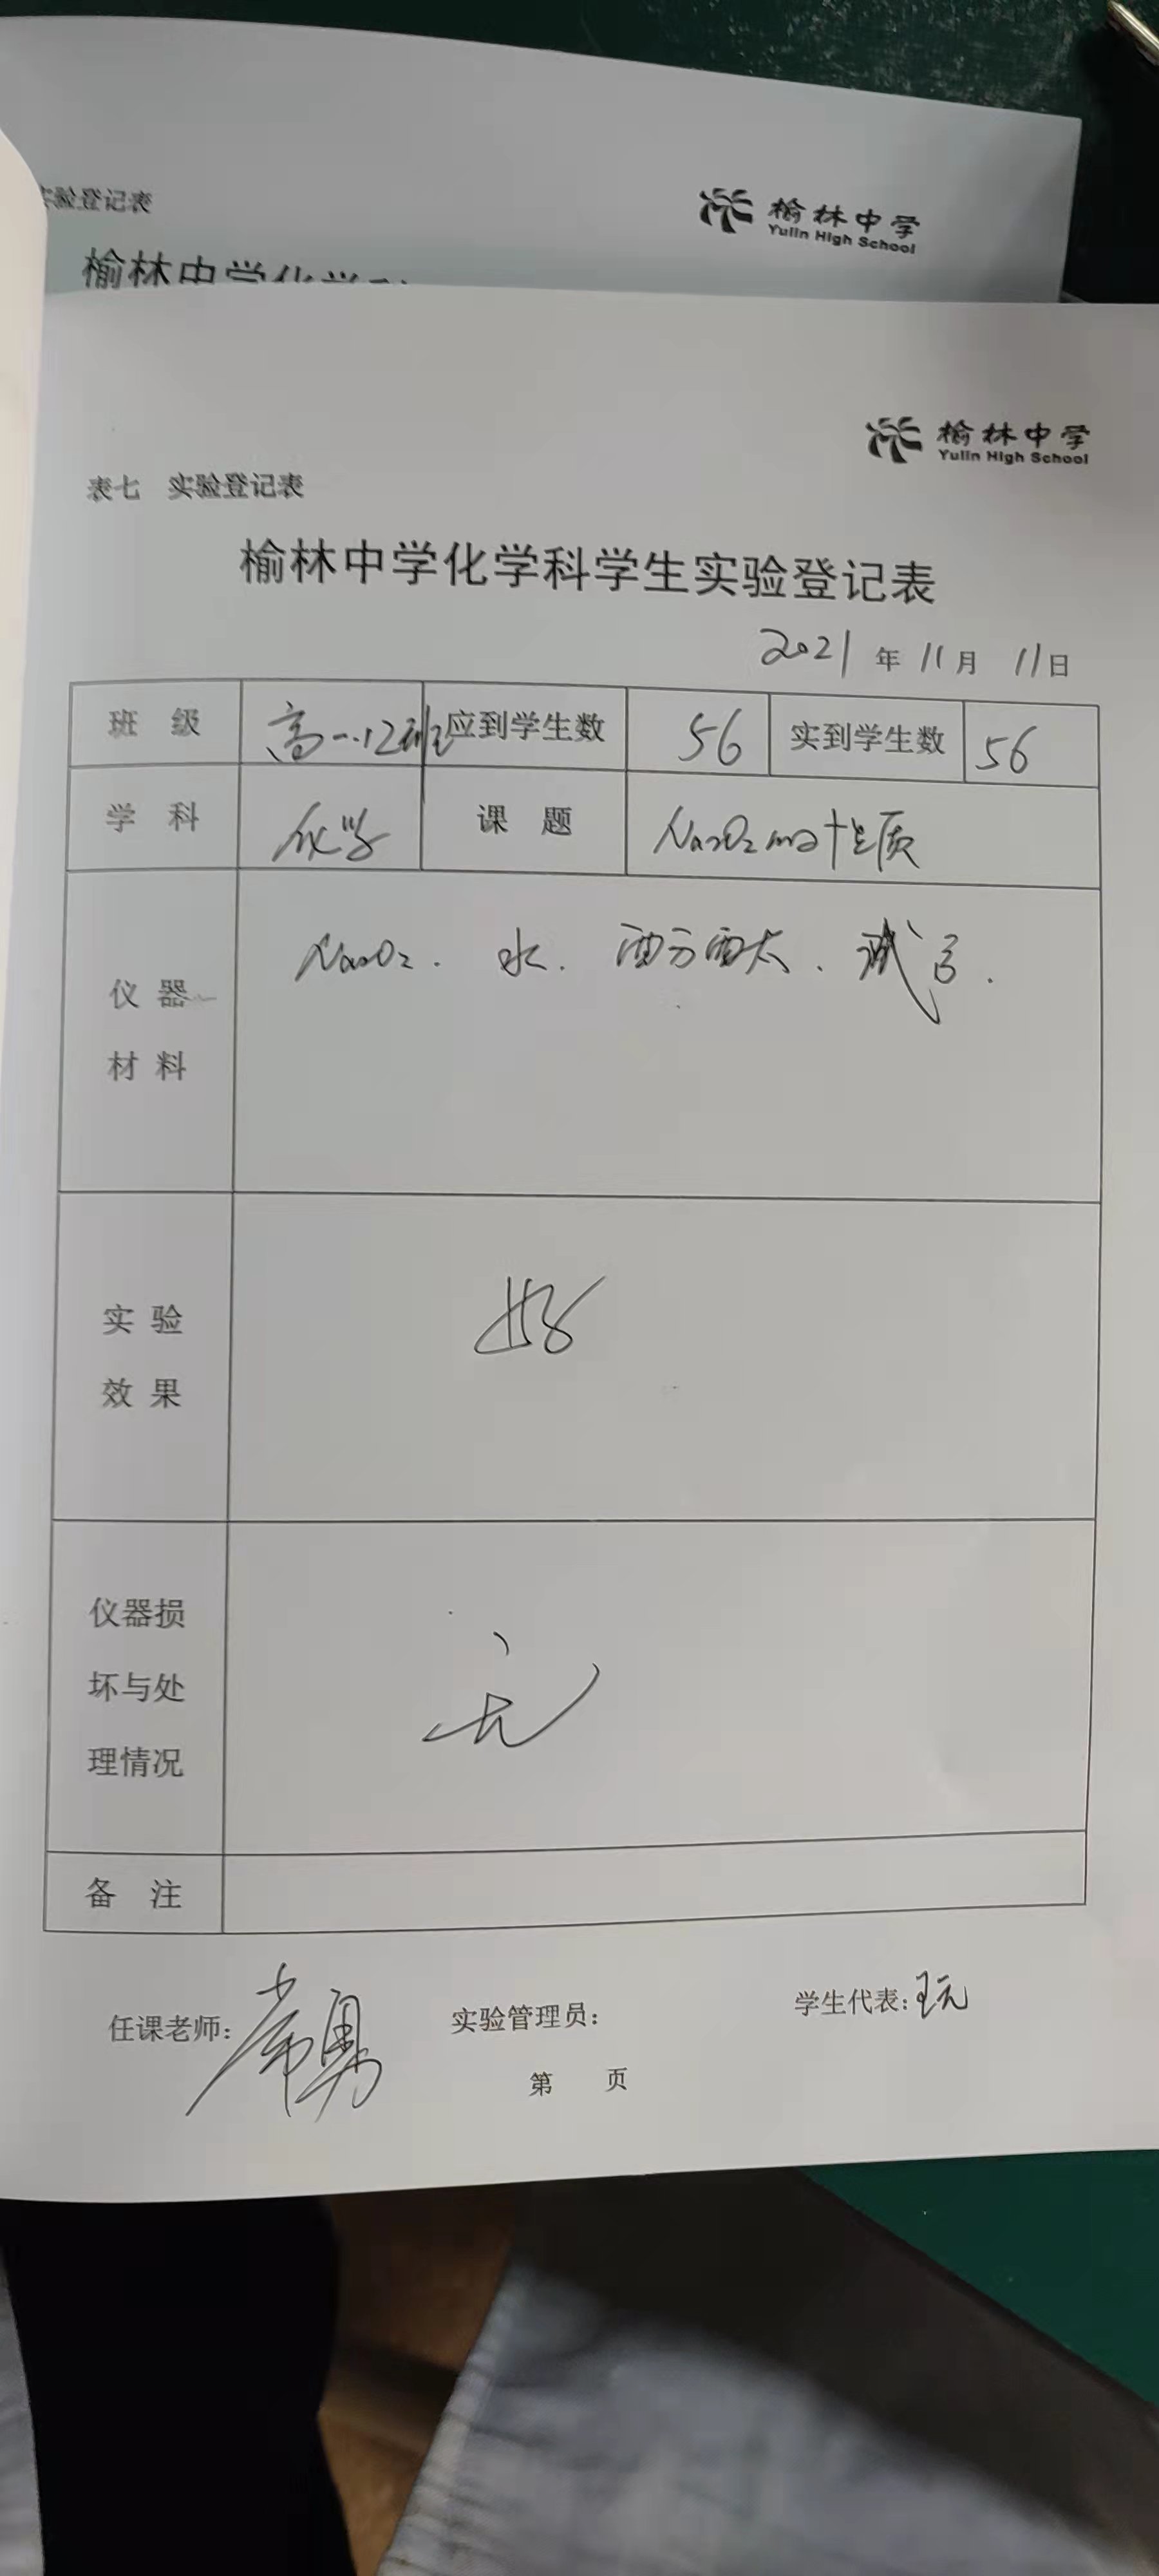 实验登记表
榆林中学
Yulin High School
榆林中学化学科
榆林中学
Yulin High School
表七 实验登记表
榆林中学化学科学生实验登记表
2021 年 11 月 11 日
班 级 高一.12班 应到学生数 56 实到学生数 56
学 科 化学 课 题 Na2O2的性质
仪 器 Na2O2. 水. 酉分酉太. 试管.
材 料
实 验 好
效 果
仪器损
坏与处 无
理情况
备 注
任课老师: 常勇 实验管理员: 学生代表: 王元
第 页